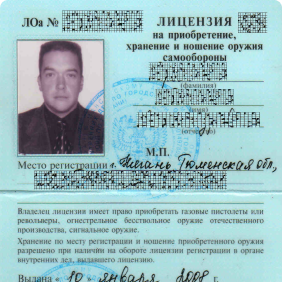 ЛОа №
ЛИЦЕНЗИЯ
на приобретение,
хранение и ношение оружия
самообороны
(фамилия)
(имя)
(отчество)
М.П.
Место регистрации г. Нягань Тюменская обл,
Владелец лицензии имеет право приобретать газовые пистолеты или
револьверы, огнестрельное бесствольное оружие отечественного
производства, сигнальное оружие.
Хранение по месту регистрации и ношение приобретенного оружия
разрешено при наличии на обороте лицензии регистрации в орга-
нах внутренних дел, выдавшего лицензию.
Выдана «10» января 2008 г.